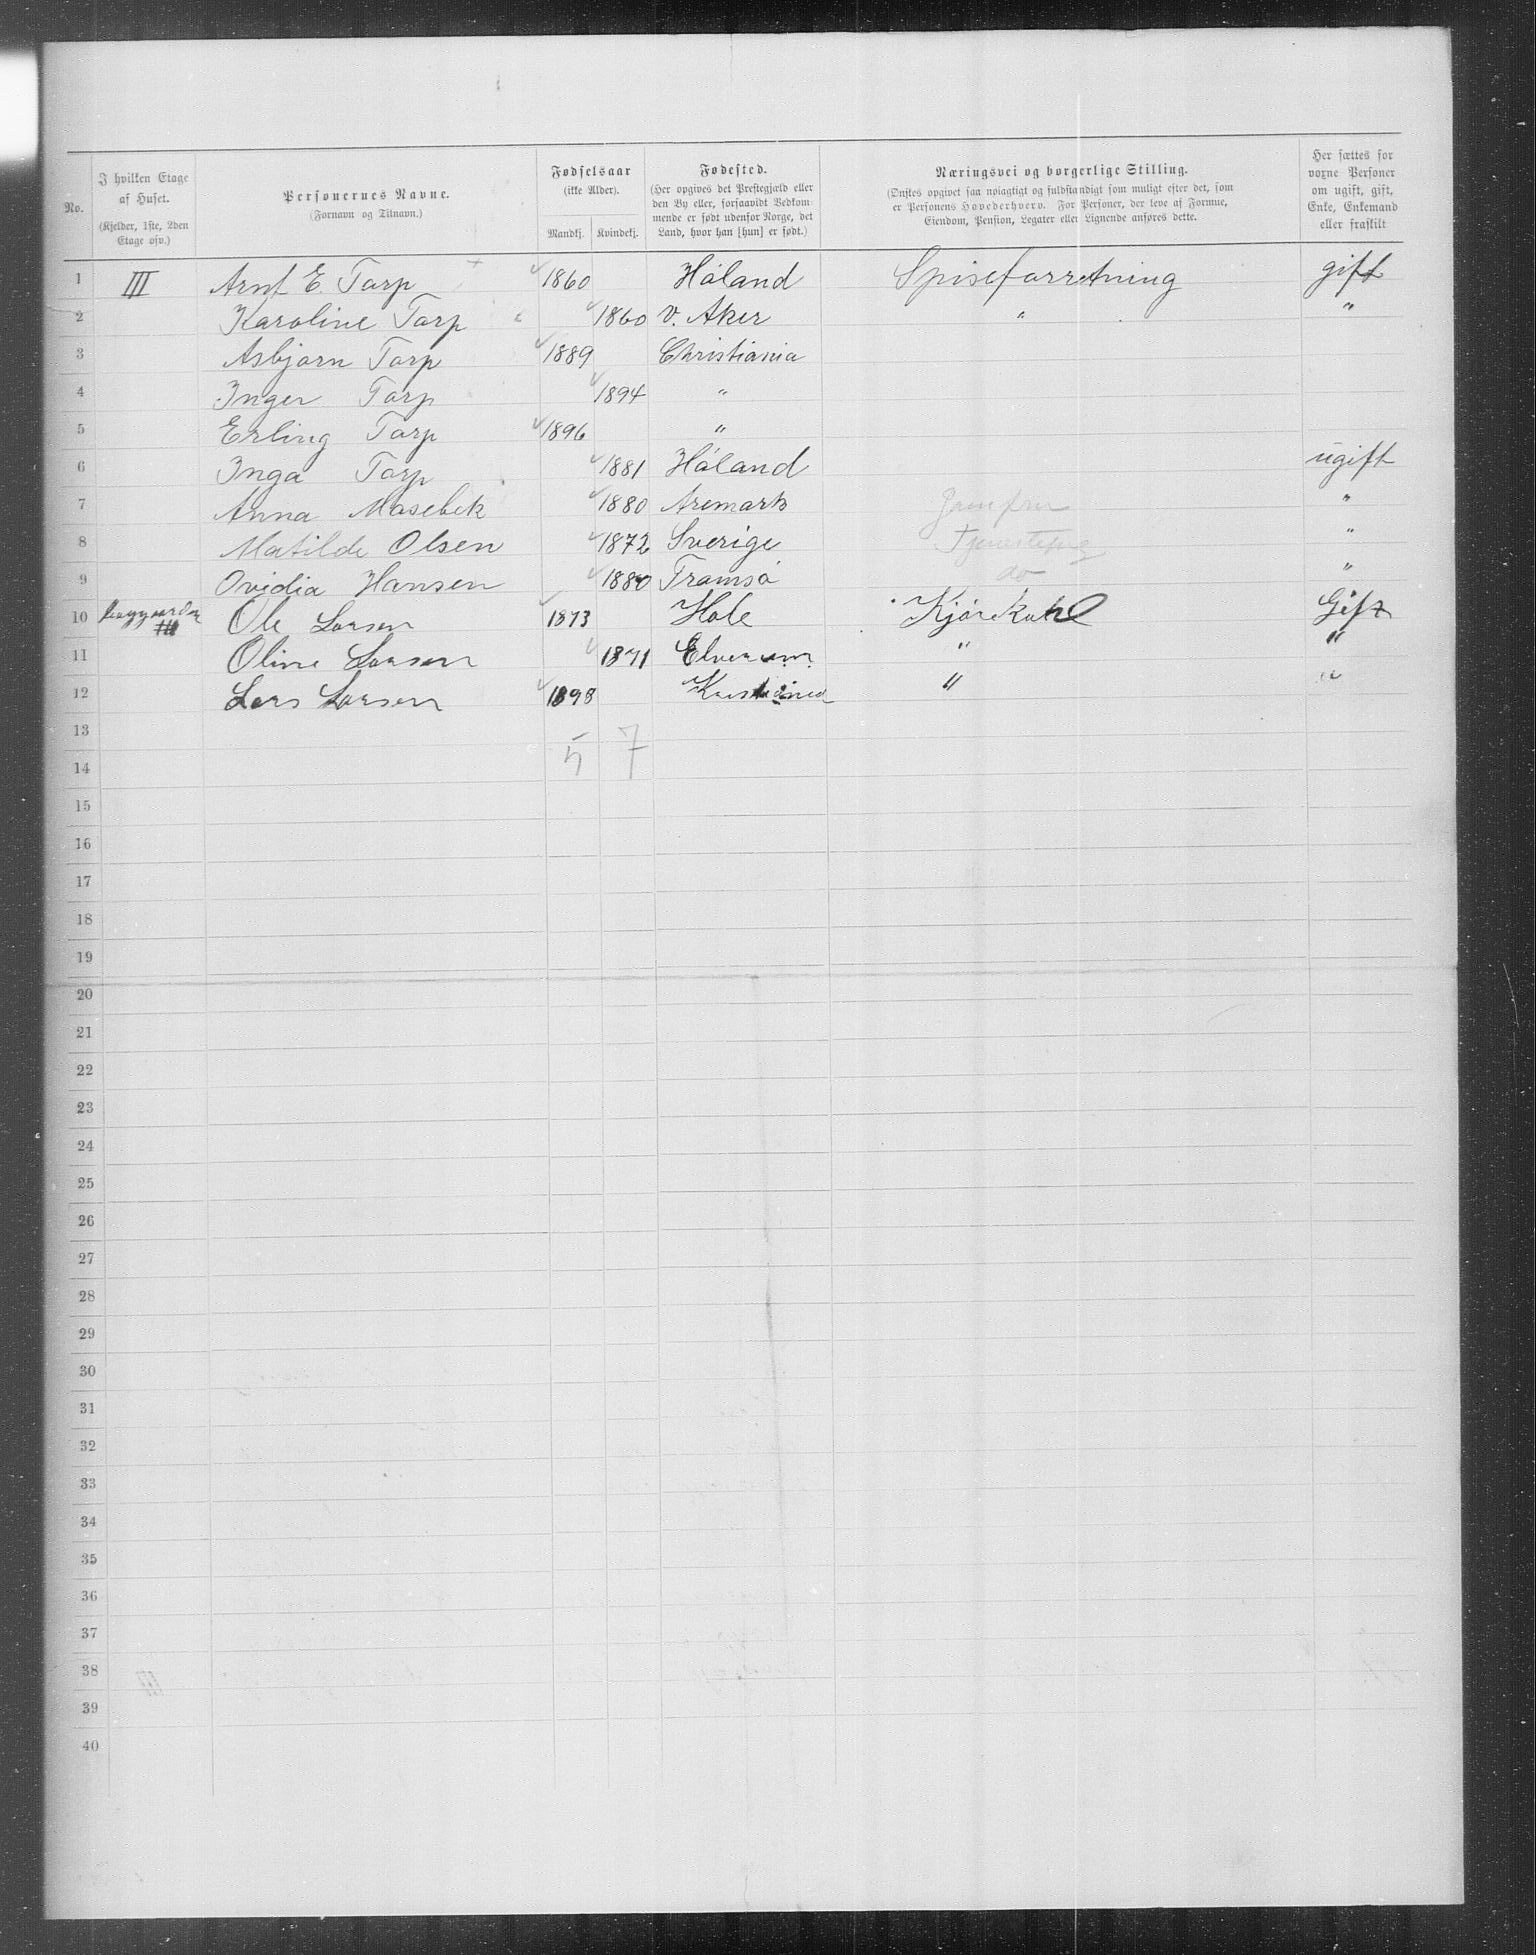 No.
I hvilken Etage af Huset. (Kjelder, 1ste, 2den Etage osv.)
Personernes Navne. (Fornavn og Tilnavn.)
Fødselsaar (ikke Alder). Mandkj. Kvindekj.
Fødested. (Her opgives det Prestegjæld eller den By eller, forsaavidt Vedkommende er født udenfor Norge, det Land, hvor han [hun] er født.)
Næringsvei og borgerlige Stilling. (Ønskes opgivet saa nøiagtigt og fuldstændigt som muligt efter det, som er Personens Hovederhverv. For Personer, der leve af Formue, Eiendom, Pension, Legater eller Lignende anføres dette.)
Her sættes for voxne Personer om ugift, gift, Enke, Enkemand eller fraskilt
1 III Arnt E. Tarp 1860 Håland Spiseforretning gift
2 Karoline Tarp 1860 V. Aker " "
3 Asbjørn Tarp 1889 Christiania
4 Inger Tarp 1894 "
5 Erling Tarp 1896 "
6 Inga Tarp 1881 Håland ugift
7 Anna Masebek 1880 Aremark Jomfru "
8 Matilde Olsen 1872 Sverige Tjenestepige "
9 Ovidia Hansen 1880 Tramsø do "
10 Ole Larsen 1873 Hole Kjørekarl Gift
11 Oline Larsen 1871 Elverum " "
12 Lars Larsen 1898 Kristiania " "
13
5 7
14
15
16
17
18
19
20
21
22
23
24
25
26
27
28
29
30
31
32
33
34
35
36
37
38
39
40